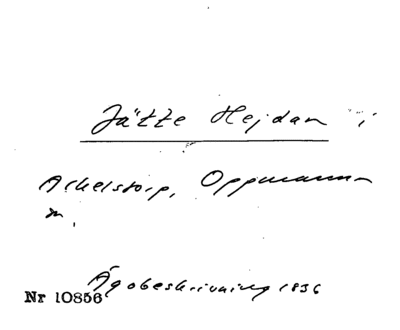 Jätte Hejdan i
Arkelstorp, Oppmanna
m.
Ägobeskrivning 1836
Nr 10856